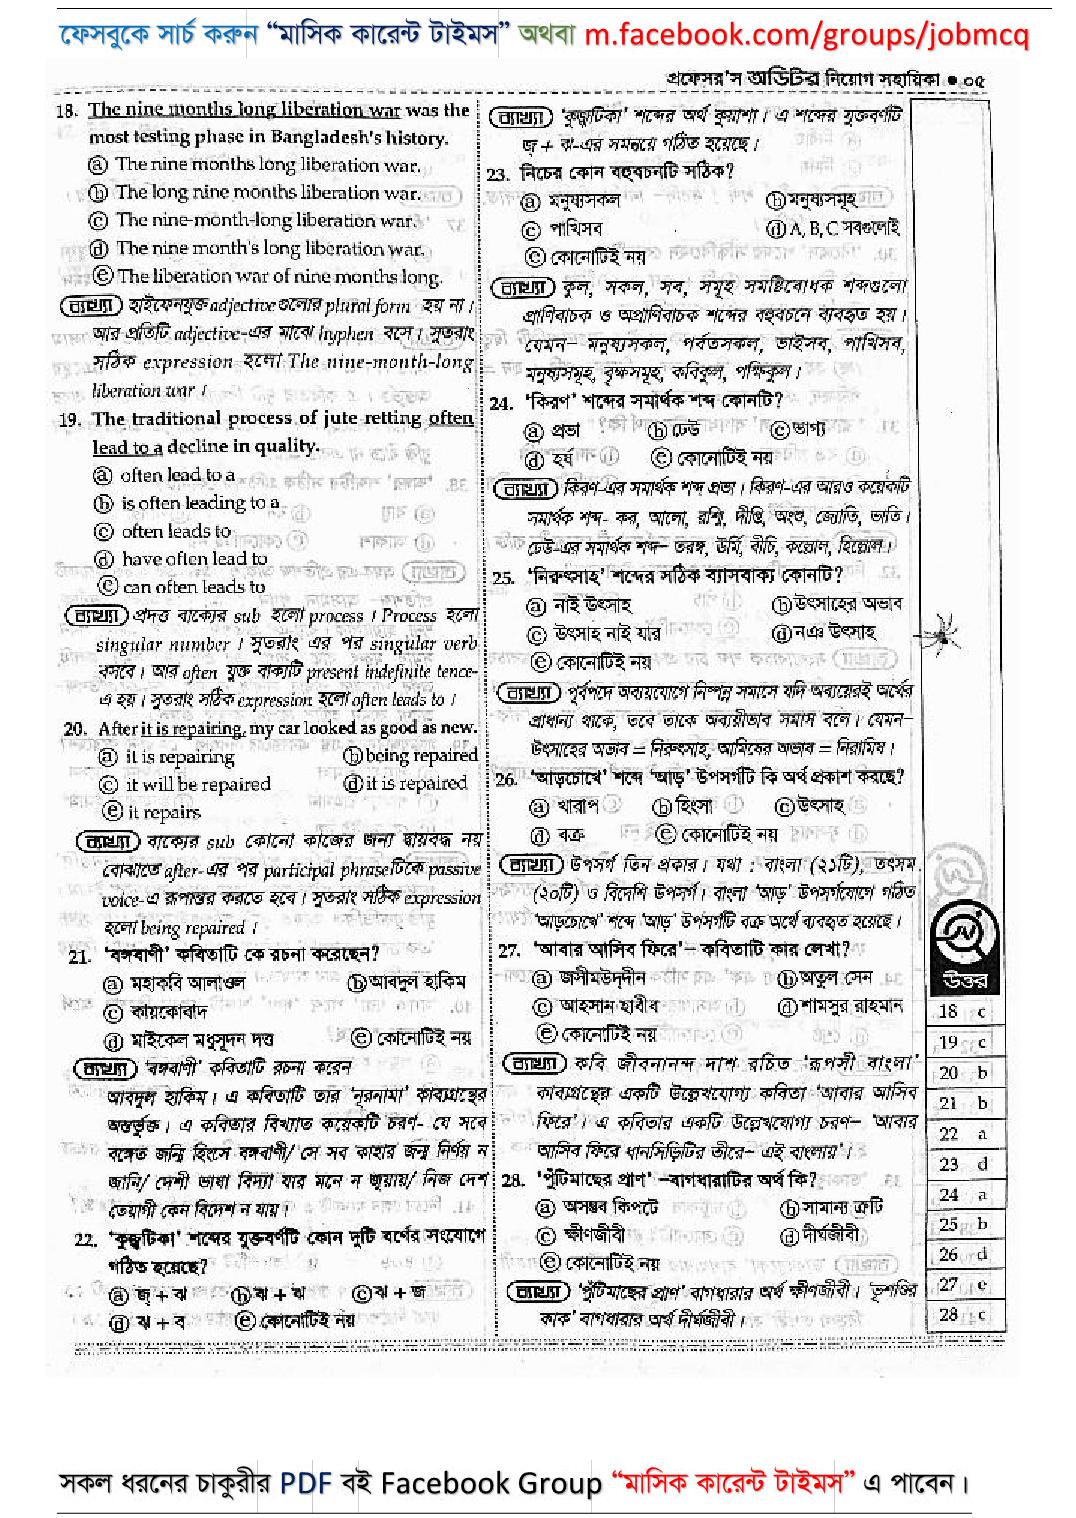 ফেসবুকে সার্চ করুন “মাসিক কারেন্ট টাইমস” অথবা m.facebook.com/groups/jobmcq
প্রফেসর'স অডিটর নিয়োগ সহায়িকা ● ০৫
18. The nine months long liberation war was the
most testing phase in Bangladesh's history.
ⓐ The nine months long liberation war.
ⓑ The long nine months liberation war.
ⓒ The nine-month-long liberation war.
ⓓ The nine month's long liberation war.
ⓔ The liberation war of nine months long.
ব্যাখ্যা হাইফেনযুক্ত adjective গুলোর plural form হয় না।
আর প্রতিটি adjective-এর মাঝে hyphen বসে। সুতরাং
সঠিক expression হলো The nine-month-long
liberation war।
19. The traditional process of jute retting often
lead to a decline in quality.
ⓐ often lead to a
ⓑ is often leading to a
ⓒ often leads to
ⓓ have often lead to
ⓔ can often leads to
ব্যাখ্যা প্রদত্ত বাক্যের sub হলো process। Process হলো
singular number। সুতরাং এর পর singular verb
বসবে। আর often যুক্ত বাক্যটি present indefinite tence-
এ হয়। সুতরাং সঠিক expression হলো often leads to।
20. After it is repairing, my car looked as good as new.
ⓐ it is repairing ⓑ being repaired
ⓒ it will be repaired ⓓ it is repaired
ⓔ it repairs
ব্যাখ্যা বাক্যের sub কোনো কাজের জন্য দ্বায়বদ্ধ নয়
বোঝাতে after-এর পর participal phraseটিকে passive
voice-এ রূপান্তর করতে হবে। সুতরাং সঠিক expression
হলো being repaired।
21. ‘বঙ্গবাণী’ কবিতাটি কে রচনা করেছেন?
ⓐ মহাকবি আলাওল ⓑ আবদুল হাকিম
ⓒ কায়কোবাদ
ⓓ মাইকেল মধুসূদন দত্ত ⓔ কোনোটিই নয়
ব্যাখ্যা ‘বঙ্গবাণী’ কবিতাটি রচনা করেন
আবদুল হাকিম। এ কবিতাটি তার ‘নূরনামা’ কাব্যগ্রন্থের
অন্তর্ভুক্ত। এ কবিতার বিখ্যাত কয়েকটি চরণ- যে সবে
বঙ্গেত জন্মি হিংসে বঙ্গবাণী/ সে সব কাহার জন্ম নির্ণয় ন
জানি/ দেশী ভাষা বিদ্যা যার মনে ন জুয়ায়/ নিজ দেশ
তেয়াগী কেন বিদেশ ন যায়।
22. ‘কুজ্ঝটিকা’ শব্দের যুক্তবর্ণটি কোন দুটি বর্ণের সংযোগে
গঠিত হয়েছে?
ⓐ জ্ + ঝ ⓑ ঝ + ঝ ⓒ ঝ + জ
ⓓ ঝ + ব ⓔ কোনোটিই নয়
ব্যাখ্যা ‘কুজ্ঝটিকা’ শব্দের অর্থ কুয়াশা। এ শব্দের যুক্তবর্ণটি
জ্ + ঝ-এর সমন্বয়ে গঠিত হয়েছে।
23. নিচের কোন বহুবচনটি সঠিক?
ⓐ মনুষ্যসকল ⓑ মনুষ্যসমূহ
ⓒ পাখিসব ⓓ A, B, C সবগুলোই
ⓔ কোনোটিই নয়
ব্যাখ্যা কুল, সকল, সব, সমূহ সমষ্টিবোধক শব্দগুলো
প্রাণিবাচক ও অপ্রাণিবাচক শব্দের বহুবচনে ব্যবহৃত হয়।
যেমন– মনুষ্যসকল, পর্বতসকল, ভাইসব, পাখিসব,
মনুষ্যসমূহ, বৃক্ষসমূহ, কবিকুল, পক্ষিকুল।
24. ‘কিরণ’ শব্দের সমার্থক শব্দ কোনটি?
ⓐ প্রভা ⓑ ঢেউ ⓒ ভাগ্য
ⓓ হর্ষ ⓔ কোনোটিই নয়
ব্যাখ্যা কিরণ-এর সমার্থক শব্দ প্রভা। কিরণ-এর আরও কয়েকটি
সমার্থক শব্দ- কর, আলো, রশ্মি, দীপ্তি, অংশু, জ্যোতি, ভাতি।
ঢেউ-এর সমার্থক শব্দ– তরঙ্গ, ঊর্মি, বীচি, কল্লোল, হিল্লোল।
25. ‘নিরুৎসাহ’ শব্দের সঠিক ব্যাসবাক্য কোনটি?
ⓐ নাই উৎসাহ ⓑ উৎসাহের অভাব
ⓒ উৎসাহ নাই যার ⓓ নঞ উৎসাহ
ⓔ কোনোটিই নয়
ব্যাখ্যা পূর্বপদে অব্যয়যোগে নিষ্পন্ন সমাসে যদি অব্যয়েরই অর্থের
প্রাধান্য থাকে, তবে তাকে অব্যয়ীভাব সমাস বলে। যেমন–
উৎসাহের অভাব = নিরুৎসাহ, আমিষের অভাব = নিরামিষ।
26. ‘আড়চোখে’ শব্দে ‘আড়’ উপসর্গটি কি অর্থ প্রকাশ করছে?
ⓐ খারাপ ⓑ হিংসা ⓒ উৎসাহ
ⓓ বক্র ⓔ কোনোটিই নয়
ব্যাখ্যা উপসর্গ তিন প্রকার। যথা : বাংলা (২১টি), তৎসম
(২০টি) ও বিদেশি উপসর্গ। বাংলা ‘আড়’ উপসর্গযোগে গঠিত
‘আড়চোখে’ শব্দে ‘আড়’ উপসর্গটি বক্র অর্থে ব্যবহৃত হয়েছে।
27. ‘আবার আসিব ফিরে’– কবিতাটি কার লেখা?
ⓐ জসীমউদ্‌দীন ⓑ অতুল সেন
ⓒ আহসান হাবীব ⓓ শামসুর রাহমান
ⓔ কোনোটিই নয়
ব্যাখ্যা কবি জীবনানন্দ দাশ রচিত ‘রূপসী বাংলা’
কাব্যগ্রন্থের একটি উল্লেখযোগ্য কবিতা ‘আবার আসিব
ফিরে’। এ কবিতার একটি উল্লেখযোগ্য চরণ– ‘আবার
আসিব ফিরে ধানসিড়িটির তীরে– এই বাংলায়’।
28. ‘পুঁটিমাছের প্রাণ’ –বাগধারাটির অর্থ কি?
ⓐ অসম্ভব কিপটে ⓑ সামান্য ত্রুটি
ⓒ ক্ষীণজীবী ⓓ দীর্ঘজীবী
ⓔ কোনোটিই নয়
ব্যাখ্যা ‘পুঁটিমাছের প্রাণ’ বাগধারার অর্থ ক্ষীণজীবী। ‘ভূশণ্ডির
কাক’ বাগধারার অর্থ দীর্ঘজীবী।
উত্তর
18 c
19 c
20 b
21 b
22 a
23 d
24 a
25 b
26 d
27 e
28 c
সকল ধরনের চাকুরীর PDF বই Facebook Group “মাসিক কারেন্ট টাইমস” এ পাবেন।